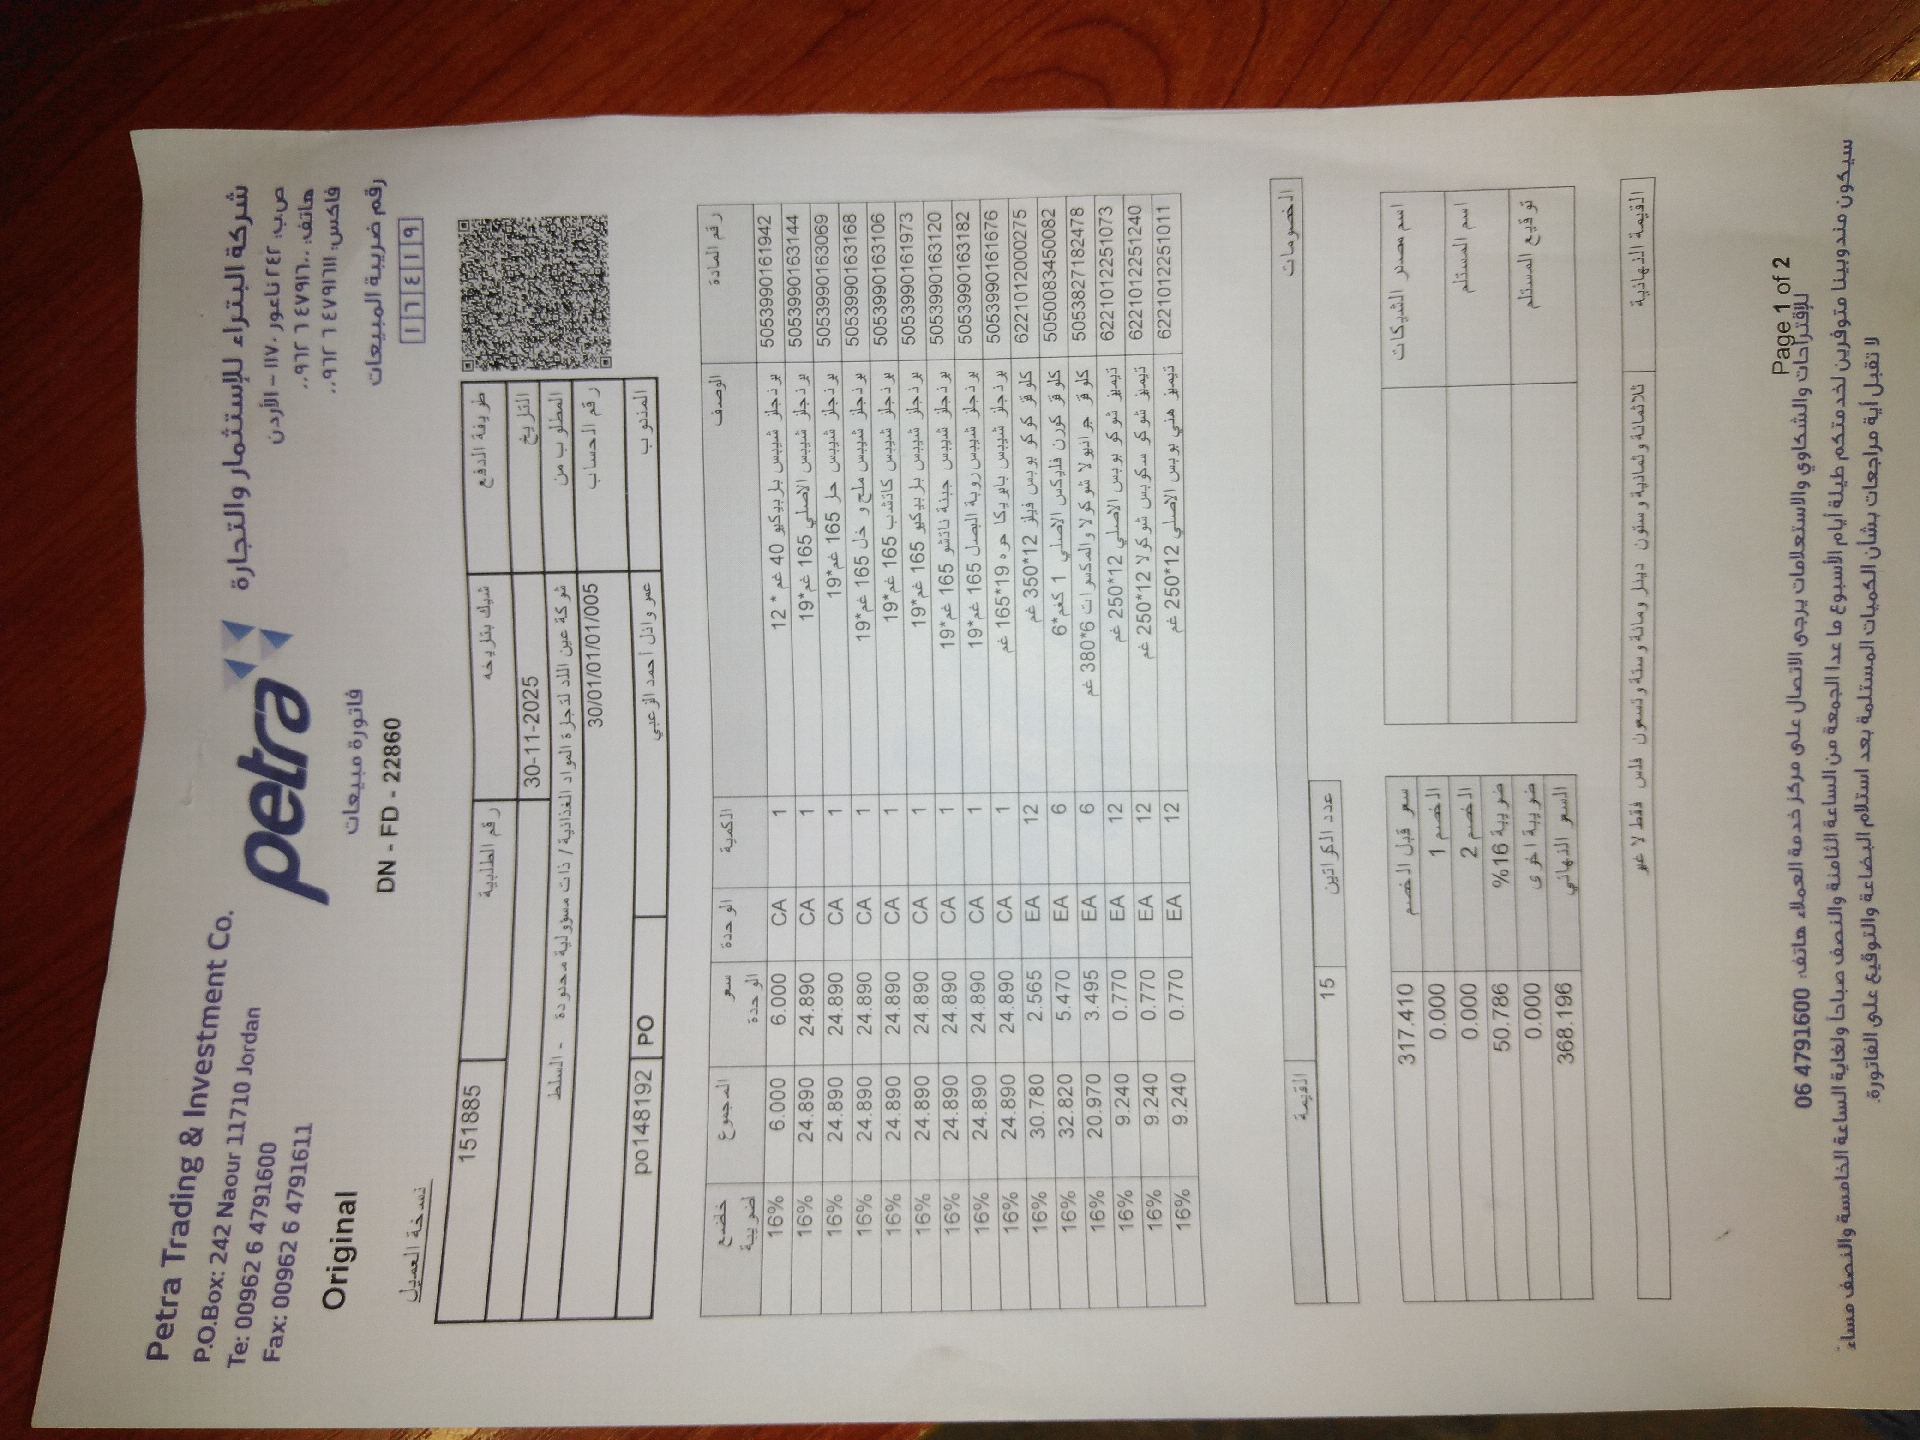 Petra Trading & Investment Co.
P.O.Box: 242 Naour 11710 Jordan
Te: 00962 6 4791600
Fax: 00962 6 4791611
petra
شركة البتراء للإستثمار والتجارة
ص.ب: ٢٤٢ ناعور ١١٧١٠ - الأردن
هاتف: ٤٧٩١٦٠٠ ٦ ٠٠٩٦٢
فاكس: ٤٧٩١٦١١ ٦ ٠٠٩٦٢
رقم ضريبة المبيعات
١٦٤١٩
Original
فاتورة مبيعات
DN - FD - 22860
نسخة العميل
طريقة الدفع شيك بتاريخه رقم الطلبية 151885
التاريخ 30-11-2025
المطلوب من شركة عين اللد لتجارة المواد الغذائية / ذات مسؤولية محدودة - السلط
رقم الحساب 30/01/01/01/005
المندوب عمر وائل احمد الزعبي PO po148192
رقم المادة الوصف الكمية الوحدة سعر الوحدة المجموع خاضع لضريبة
5053990161942 برنجلز شيبس باربيكيو 40 غم * 12 1 CA 6.000 6.000 16%
5053990163144 برنجلز شيبس الاصلي 165 غم*19 1 CA 24.890 24.890 16%
5053990163069 برنجلز شيبس حار 165 غم*19 1 CA 24.890 24.890 16%
5053990163168 برنجلز شيبس ملح و خل 165 غم*19 1 CA 24.890 24.890 16%
5053990163106 برنجلز شيبس كاتشب 165 غم*19 1 CA 24.890 24.890 16%
5053990161973 برنجلز شيبس باربيكيو 165 غم*19 1 CA 24.890 24.890 16%
5053990163120 برنجلز شيبس جبنة ناتشو 165 غم*19 1 CA 24.890 24.890 16%
5053990163182 برنجلز شيبس روبة البصل 165 غم*19 1 CA 24.890 24.890 16%
5053990161676 برنجلز شيبس بابريكا حره 19*165 غم 1 CA 24.890 24.890 16%
6221012000275 كلوقز كوكو بوبس فيلز 12*350 غم 12 EA 2.565 30.780 16%
5050083450082 كلوقز كورن فليكس الاصلي 1 كغم*6 6 EA 5.470 32.820 16%
5053827182478 كلوقز جرانيولا شوكولا والمكسرات 6*380 غم 6 EA 3.495 20.970 16%
6221012251073 تيميز شوكو بوبس الاصلي 12*250 غم 12 EA 0.770 9.240 16%
6221012251240 تيميز شوكو سكوبس شوكولا 12*250 غم 12 EA 0.770 9.240 16%
6221012251011 تيميز هني بوبس الاصلي 12*250 غم 12 EA 0.770 9.240 16%
الخصومات القيمة
عدد الكراتين 15
اسم مصدر الشيكات
اسم المستلم
توقيع المستلم
سعر قبل الخصم 317.410
الخصم 1 0.000
الخصم 2 0.000
ضريبة 16% 50.786
ضريبة اخرى 0.000
السعر النهائي 368.196
القيمة النهائية ثلاثمائة و ثمانية و ستون دينار ومائة و ستة و تسعون فلس فقط لا غير
Page 1 of 2
للإقتراحات والشكاوي والاستعلامات يرجى الاتصال على مركز خدمة العملاء هاتف: 06 4791600
سيكون مندوبينا متوفرين لخدمتكم طيلة أيام الأسبوع ما عدا الجمعة من الساعة الثامنة والنصف صباحا ولغاية الساعة الخامسة والنصف مساء
لا تقبل أية مراجعات بشأن الكميات المستلمة بعد استلام البضاعة والتوقيع على الفاتورة.